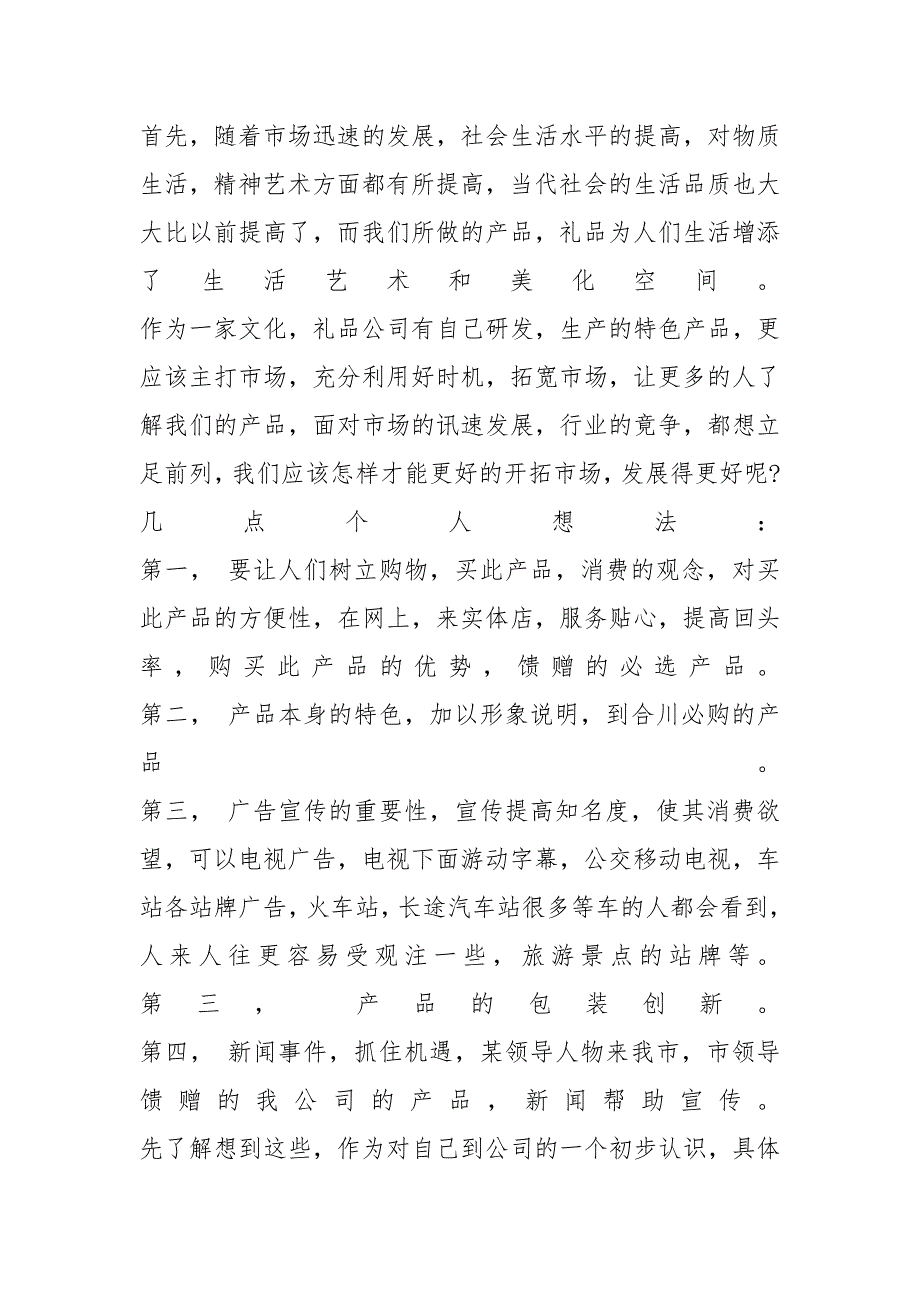 首先，随着市场迅速的发展，社会生活水平的提高，对物质
生活，精神艺术方面都有所提高，当代社会的生活品质也大
大比以前提高了，而我们所做的产品，礼品为人们生活增添
了生活艺术和美化空间。
作为一家文化，礼品公司有自己研发，生产的特色产品，更
应该主打市场，充分利用好时机，拓宽市场，让更多的人了
解我们的产品，面对市场的讯速发展，行业的竟争，都想立
足前列，我们应该怎样才能更好的开拓市场，发展得更好呢?
几点个人想法：
第一， 要让人们树立购物，买此产品，消费的观念，对买
此产品的方便性，在网上，来实体店，服务贴心，提高回头
率，购买此产品的优势，馈赠的必选产品。
第二， 产品本身的特色，加以形象说明，到合川必购的产
品。
第三， 广告宣传的重要性，宣传提高知名度，使其消费欲
望，可以电视广告，电视下面游动字幕，公交移动电视，车
站各站牌广告，火车站，长途汽车站很多等车的人都会看到，
人来人往更容易受观注一些，旅游景点的站牌等。
第三， 产品的包装创新。
第四， 新闻事件，抓住机遇，某领导人物来我市，市领导
馈赠的我公司的产品，新闻帮助宣传。
先了解想到这些，作为对自己到公司的一个初步认识，具体